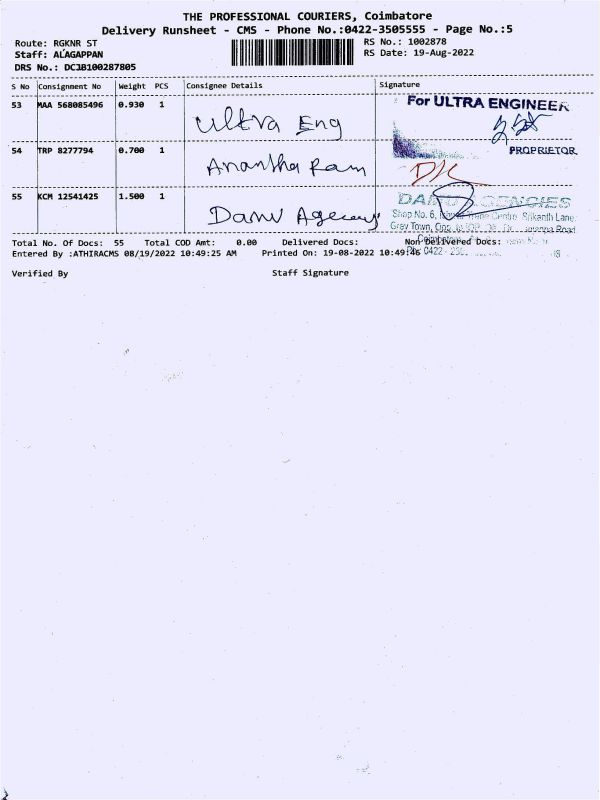 THE PROFESSIONAL COURIERS, Coimbatore
Delivery Runsheet - CMS - Phone No.:0422-3505555 - Page No.:5
Route: RGKNR ST RS No.: 1002878
Staff: ALAGAPPAN RS Date: 19-Aug-2022
DRS No.: DCJB100287805
S No Consignment No Weight PCS Consignee Details Signature
53 MAA 568085496 0.930 1 Ultra Eng For ULTRA ENGINEER
PROPRIETOR
54 TRP 8277794 0.700 1 Anantha Ram
55 KCM 12541425 1.500 1 Damu Agency
Shop No. 6, Trade Centre Srikanth Lane,
Gray Town,
Total No. Of Docs: 55 Total COD Amt: 0.00 Delivered Docs: Non Delivered Docs:
Entered By :ATHIRACMS 08/19/2022 10:49:25 AM Printed On: 19-08-2022 10:49:46
Verified By Staff Signature